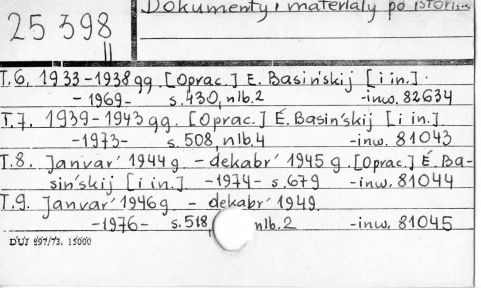 Dokumenty i materialy po istorii
25 398
II
T.6. 1933-1938 gg. [Oprac.] E. Basin'skij [i in.].
-1969- s.430, nlb.2 -inw. 82634
T.7. 1939-1943 gg. [Oprac.] É. Basin'skij [i in.]
-1973- s.508, nlb.4 -inw. 81043
T.8. Janvar' 1944 g. - dekabr' 1945 g. [Oprac.] É. Ba-
sin'skij [i in.] -1974- s.679 -inw. 81044
T.9. Janvar' 1946 g - dekabr' 1949.
-1976- s.518, nlb.2 -inw. 81045
DUJ 897/73. 15000